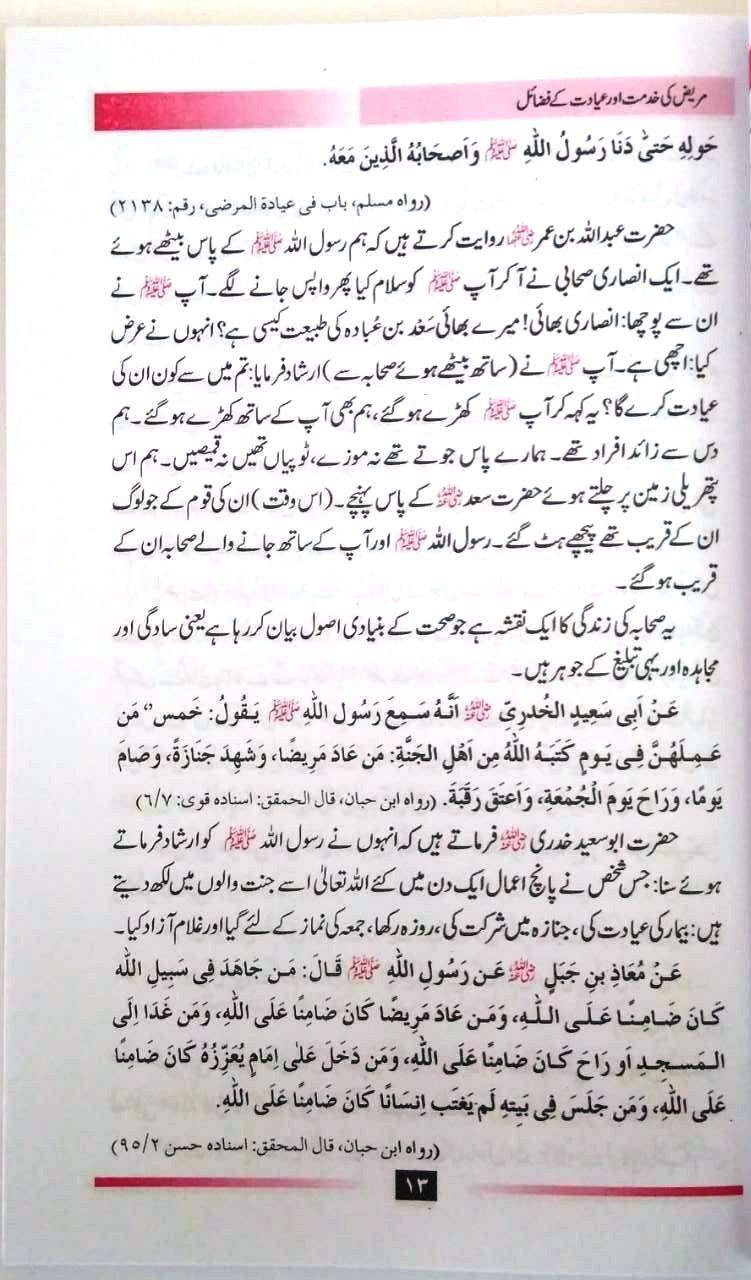 مریض کی خدمت اور عیادت کے فضائل
حَولِهِ حَتیّٰ دَنَا رَسُولُ اللهِ ﷺ وَاَصحَابُهُ الَّذِینَ مَعَهُ.
(رواه مسلم، باب فی عیادة المرضی، رقم: ۲۱۳۸)
حضرت عبداللہ بن عمر رضی اللہ عنہما روایت کرتے ہیں کہ ہم رسول اللہ ﷺ کے پاس بیٹھے ہوئے
تھے۔ ایک انصاری صحابی نے آ کر آپ ﷺ کو سلام کیا پھر واپس جانے لگے۔ آپ ﷺ نے
ان سے پوچھا: انصاری بھائی! میرے بھائی سَعْد بن عُبادہ کی طبیعت کیسی ہے؟ انہوں نے عرض
کیا: اچھی ہے۔ آپ ﷺ نے (ساتھ بیٹھے ہوئے صحابہ سے) ارشاد فرمایا: تم میں سے کون ان کی
عیادت کرے گا؟ یہ کہہ کر آپ ﷺ کھڑے ہو گئے، ہم بھی آپ کے ساتھ کھڑے ہو گئے۔ ہم
دس سے زائد افراد تھے۔ ہمارے پاس جوتے تھے نہ موزے، ٹوپیاں تھیں نہ قمیصیں۔ ہم اس
پتھریلی زمین پر چلتے ہوئے حضرت سعد رضی اللہ عنہ کے پاس پہنچے۔ (اس وقت) ان کی قوم کے جو لوگ
ان کے قریب تھے پیچھے ہٹ گئے۔ رسول اللہ ﷺ اور آپ کے ساتھ جانے والے صحابہ ان کے
قریب ہو گئے۔
یہ صحابہ کی زندگی کا ایک نقشہ ہے جو صحت کے بنیادی اصول بیان کر رہا ہے یعنی سادگی اور
مجاہدہ اور یہی تبلیغ کے جوہر ہیں۔
عَنْ اَبِی سَعِیدِ الخُدرِیِّ رضی اللہ عنہ اَنَّهُ سَمِعَ رَسُولَ اللهِ ﷺ یَقُولُ: خَمس'' مَن
عَمِلَهُنَّ فِی یَومٍ کَتَبَهُ اللهُ مِن اَهلِ الجَنَّةِ: مَن عَادَ مَرِیضًا، وَشَهِدَ جَنَازَةً، وَصَامَ
یَومًا، وَرَاحَ یَومَ الْجُمْعَةِ، وَاَعتَقَ رَقَبَةً. (رواه ابن حبان، قال الحمقق: اسناده قوی: ۶/۷)
حضرت ابو سعید خدری رضی اللہ عنہ فرماتے ہیں کہ انہوں نے رسول اللہ ﷺ کو ارشاد فرماتے
ہوئے سنا: جس شخص نے پانچ اعمال ایک دن میں کئے اللہ تعالیٰ اسے جنت والوں میں لکھ دیتے
ہیں: بیمار کی عیادت کی، جنازہ میں شرکت کی، روزہ رکھا، جمعہ کی نماز کے لئے گیا اور غلام آزاد کیا۔
عَنْ مُعَاذِ بنِ جَبَلٍ رضی اللہ عنہ عَن رَسُولِ اللهِ ﷺ قَالَ: مَن جَاهَدَ فِی سَبِیلِ الله
کَانَ ضَامِنًا عَلَی اللهِ، وَمَن عَادَ مَرِیضًا کَانَ ضَامِنًا عَلَی اللهِ، وَمَن غَدَا اِلَی
المَسجِدِ اَو رَاحَ کَانَ ضَامِنًا عَلَی اللهِ، وَمَن دَخَلَ عَلیٰ اِمَامٍ یُعَزِّزُهُ کَانَ ضَامِنًا
عَلَی اللهِ، وَمَن جَلَسَ فِی بَیتِهِ لَم یَغتَب اِنسَانًا کَانَ ضَامِنًا عَلَی اللهِ.
(رواه ابن حبان، قال المحقق: اسناده حسن ۹۵/۲)
۱۳